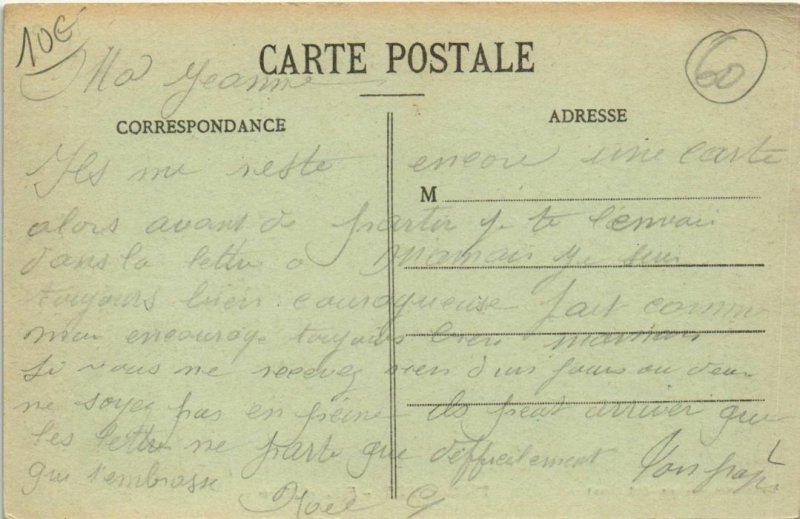 10€
60
CARTE POSTALE
Ma Jeanne
CORRESPONDANCE
ADRESSE
Ils me reste encore une carte
M
alors avant de partir je te l'envoi
dans la lettre a Maman
toujours bien courageuse fait comme
moi encourage toujours bien maman
si vous ne recevez rien d'un jours ou deux
ne soyez pas en peine ils peut arriver que
les lettre ne parte que difficilement Ton papa
qui t'embrasse Noël G